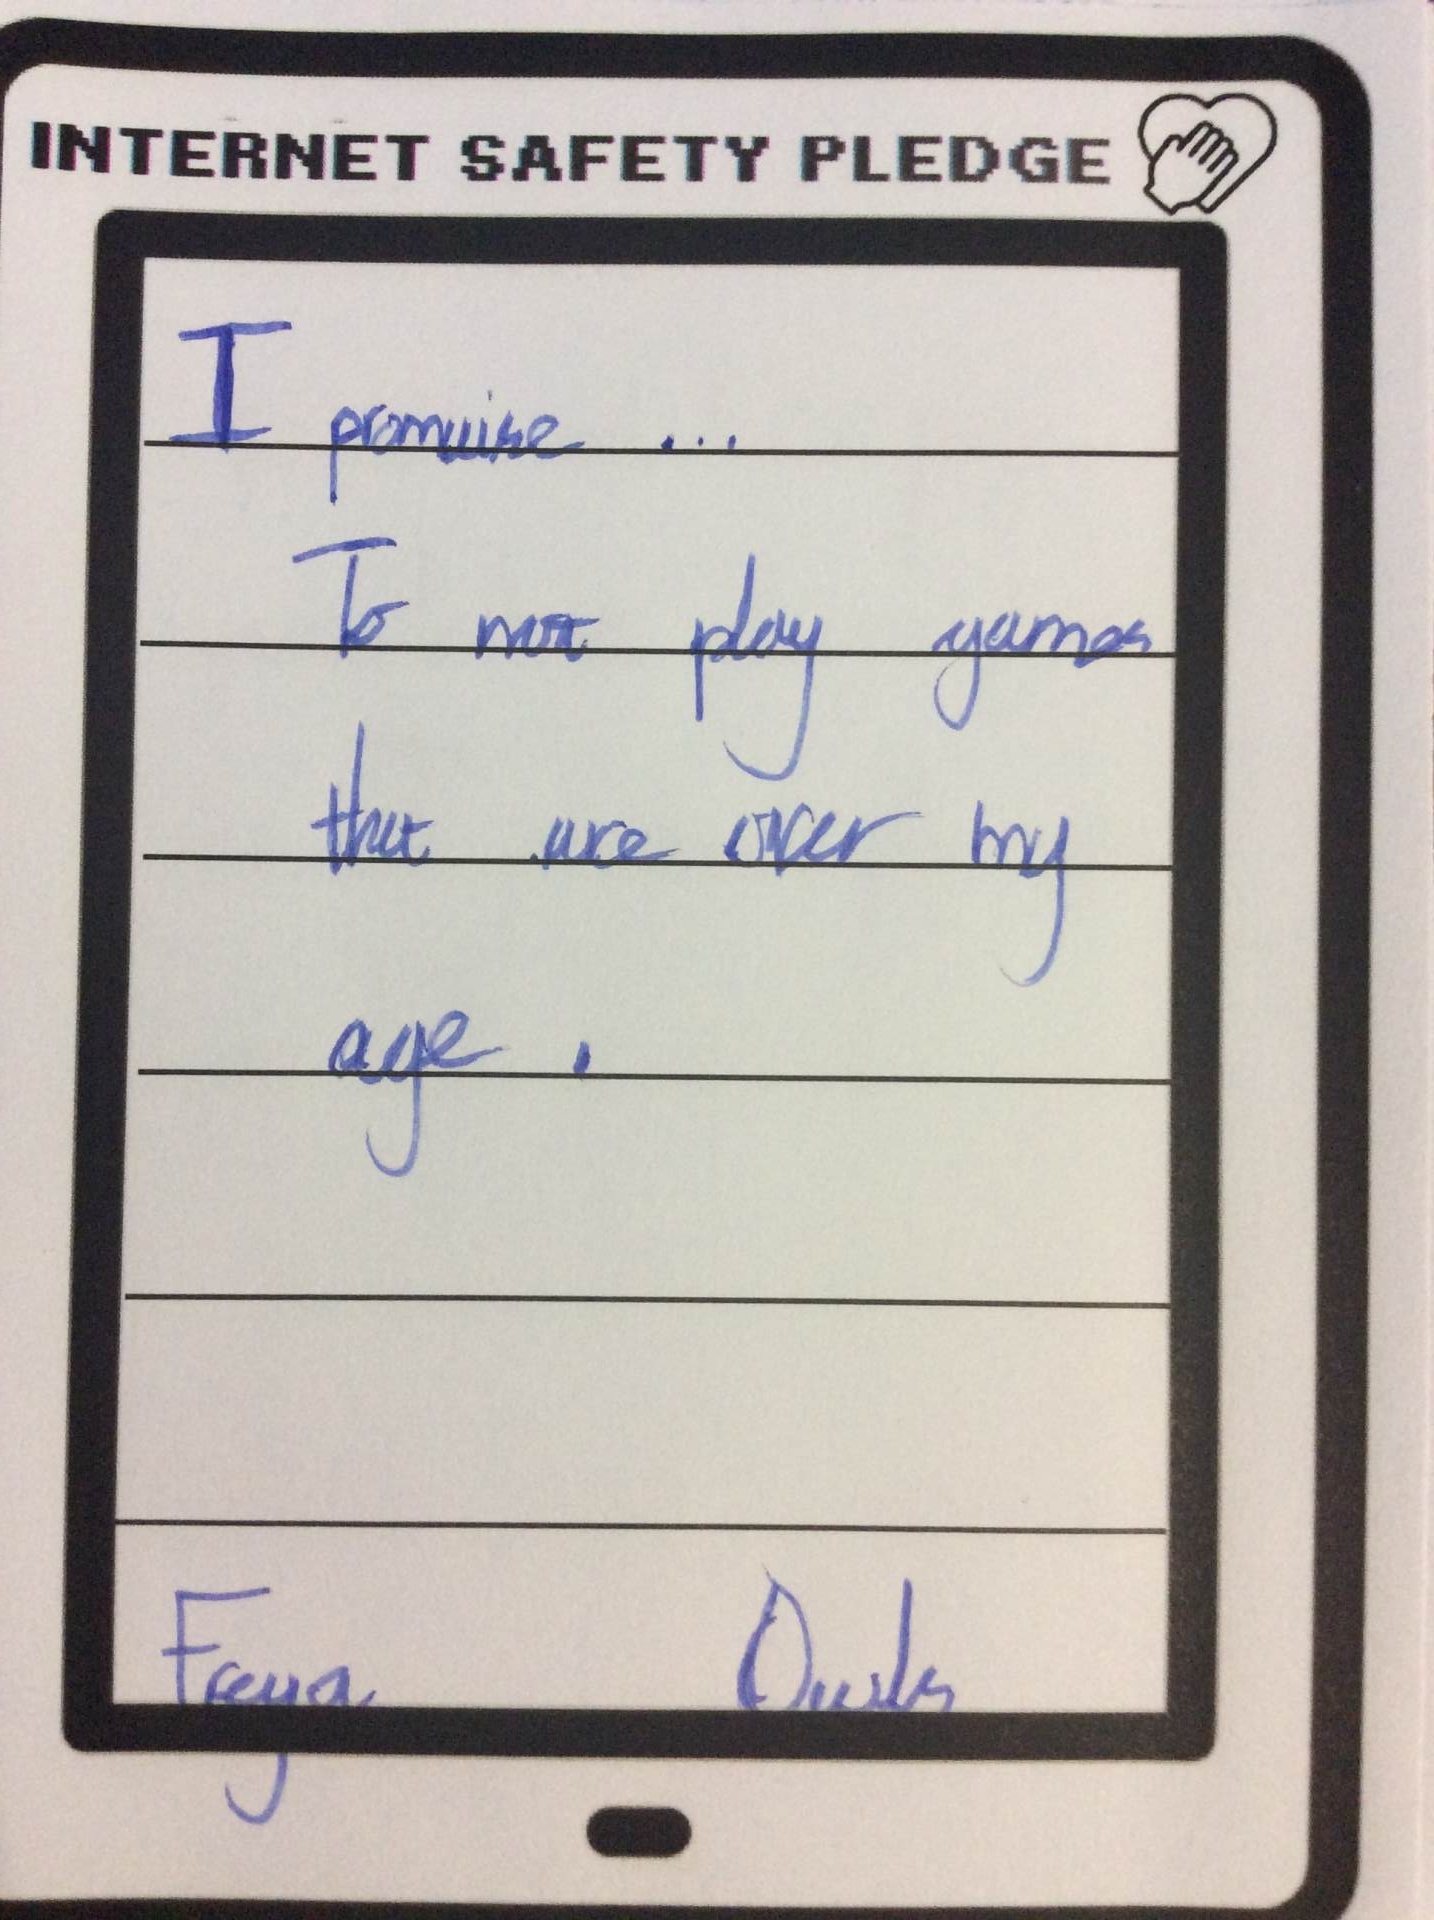 INTERNET SAFETY PLEDGE
I promise ...
To not play games
that are over my
age .
Freya Owls